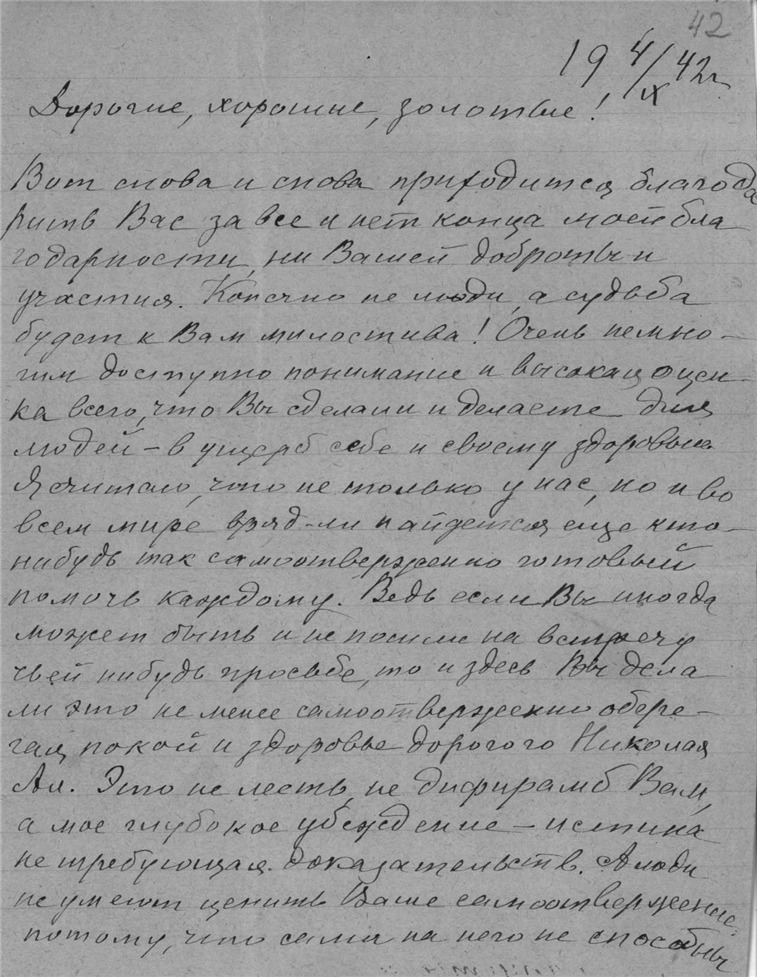 42
19 4/IX 42 г.
Дорогие, хорошие, золотые!
Вот снова и снова приходится благода
рить Вас за все и нет конца моей бла
годарности, ни Вашей доброты и
участия. Конечно не люди, а судьба
будет к Вам милостива! Очень немно-
гим доступно понимание и высокая оцен-
ка всего, что Вы сделали и делаете для
людей – в ущерб себе и своему здоровью.
Я считаю, что не только у нас, но и во
всем мире вряд-ли найдется еще кто-
нибудь так самоотверженно готовый
помочь каждому. Ведь если Вы иногда
может быть и не пошли на встречу
чьей нибудь просьбе, то и здесь Вы дела
ли это не менее самоотверженно обере-
гая покой и здоровье дорогого Николая
Ал. Это не лесть, не дифирамб Вам,
а мое глубокое убеждение – истина
не требующая доказательств. А люди
не умеют ценить Ваше самоотвержение
потому, что сами на него не способны